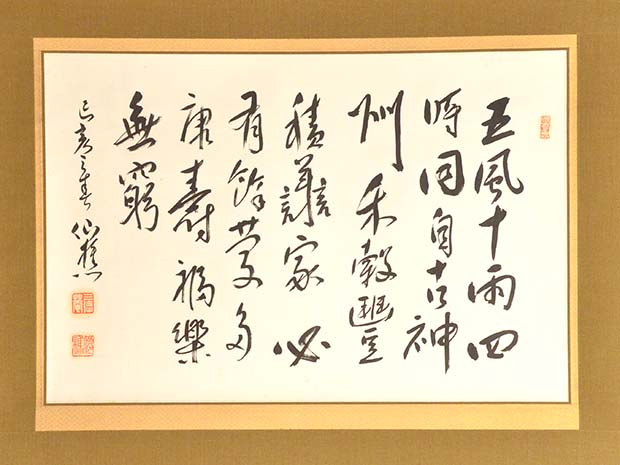 五風十雨四
時同自古神
州禾穀豐
積譱家必
有餘慶多
康壽福樂
無窮
己亥之春